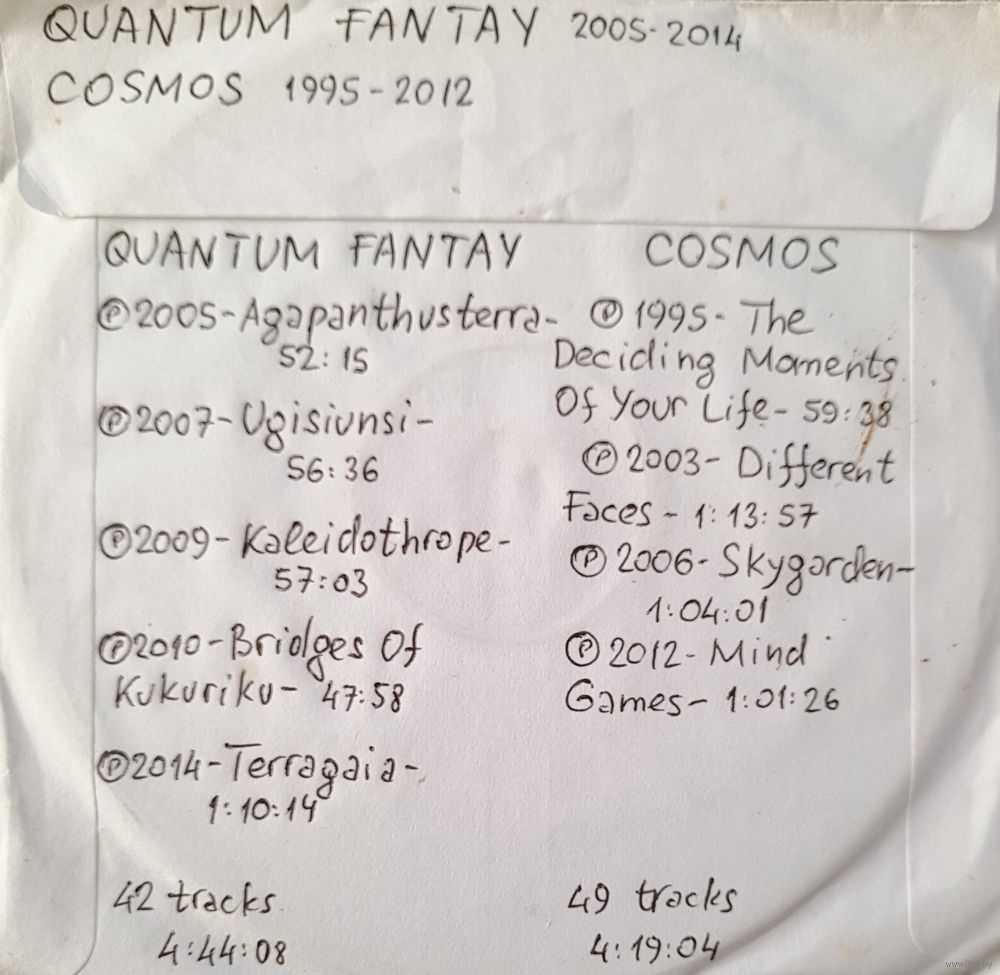 QUANTUM FANTAY 2005-2014
COSMOS 1995-2012
QUANTUM FANTAY
Ⓟ2005-Agapanthusterra-
52:15
Ⓟ2007-Ugisiunsi-
56:36
Ⓟ2009-Kaleidothrope-
57:03
Ⓟ2010-Bridges Of
Kukuriku- 47:58
Ⓟ2014-Terragaia-
1:10:14
42 tracks
4:44:08
COSMOS
Ⓟ1995- The
Deciding Moments
Of Your Life- 59:38
Ⓟ2003- Different
Faces- 1:13:57
Ⓟ2006- Skygarden-
1:04:01
Ⓟ2012- Mind
Games- 1:01:26
49 tracks
4:19:04